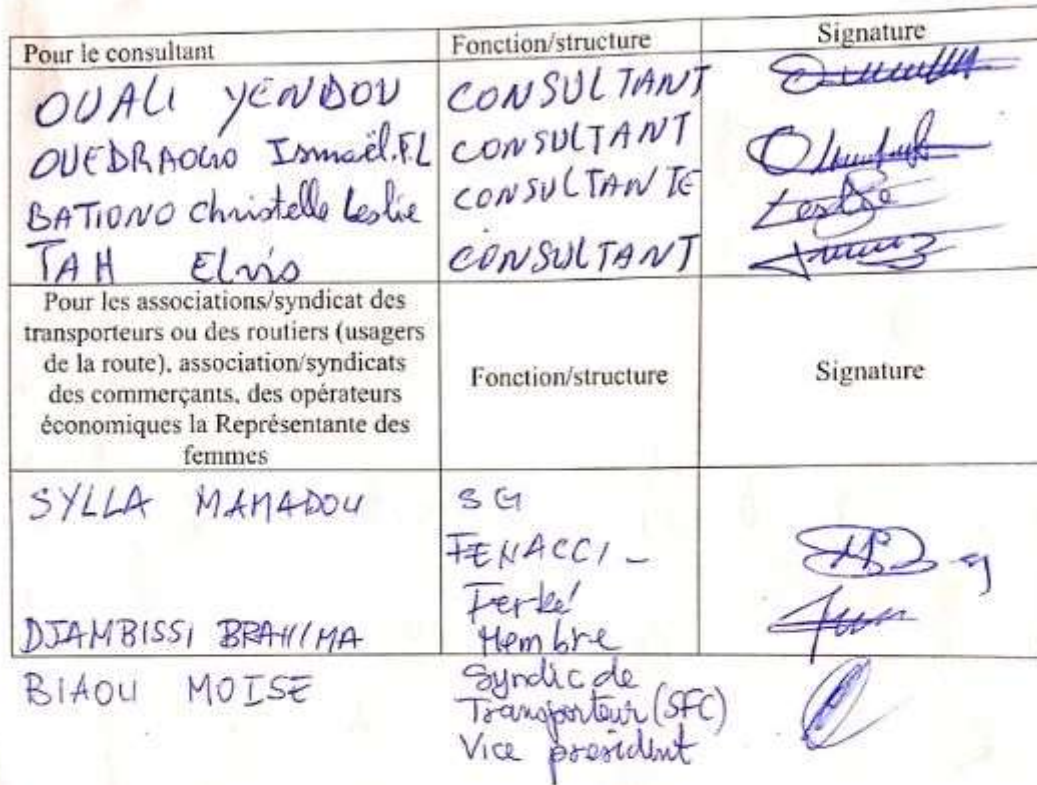 Pour le consultant Fonction/structure Signature
OUALI YENDOU CONSULTANT
OUEDRAOGO Ismaël.F.L CONSULTANT
BATIONO Christelle Leslie CONSULTANTE Leslie
TAH Elvis CONSULTANT
Pour les associations/syndicat des
transporteurs ou des routiers (usagers
de la route), association/syndicats
des commerçants, des opérateurs
économiques la Représentante des
femmes
Fonction/structure
Signature
SYLLA MAMADOU SG
FENACCI -
Ferké
DJAMBISSI BRAHIMA Membre
BIAOU MOISE Syndic de
Transporteur (SFC)
Vice president